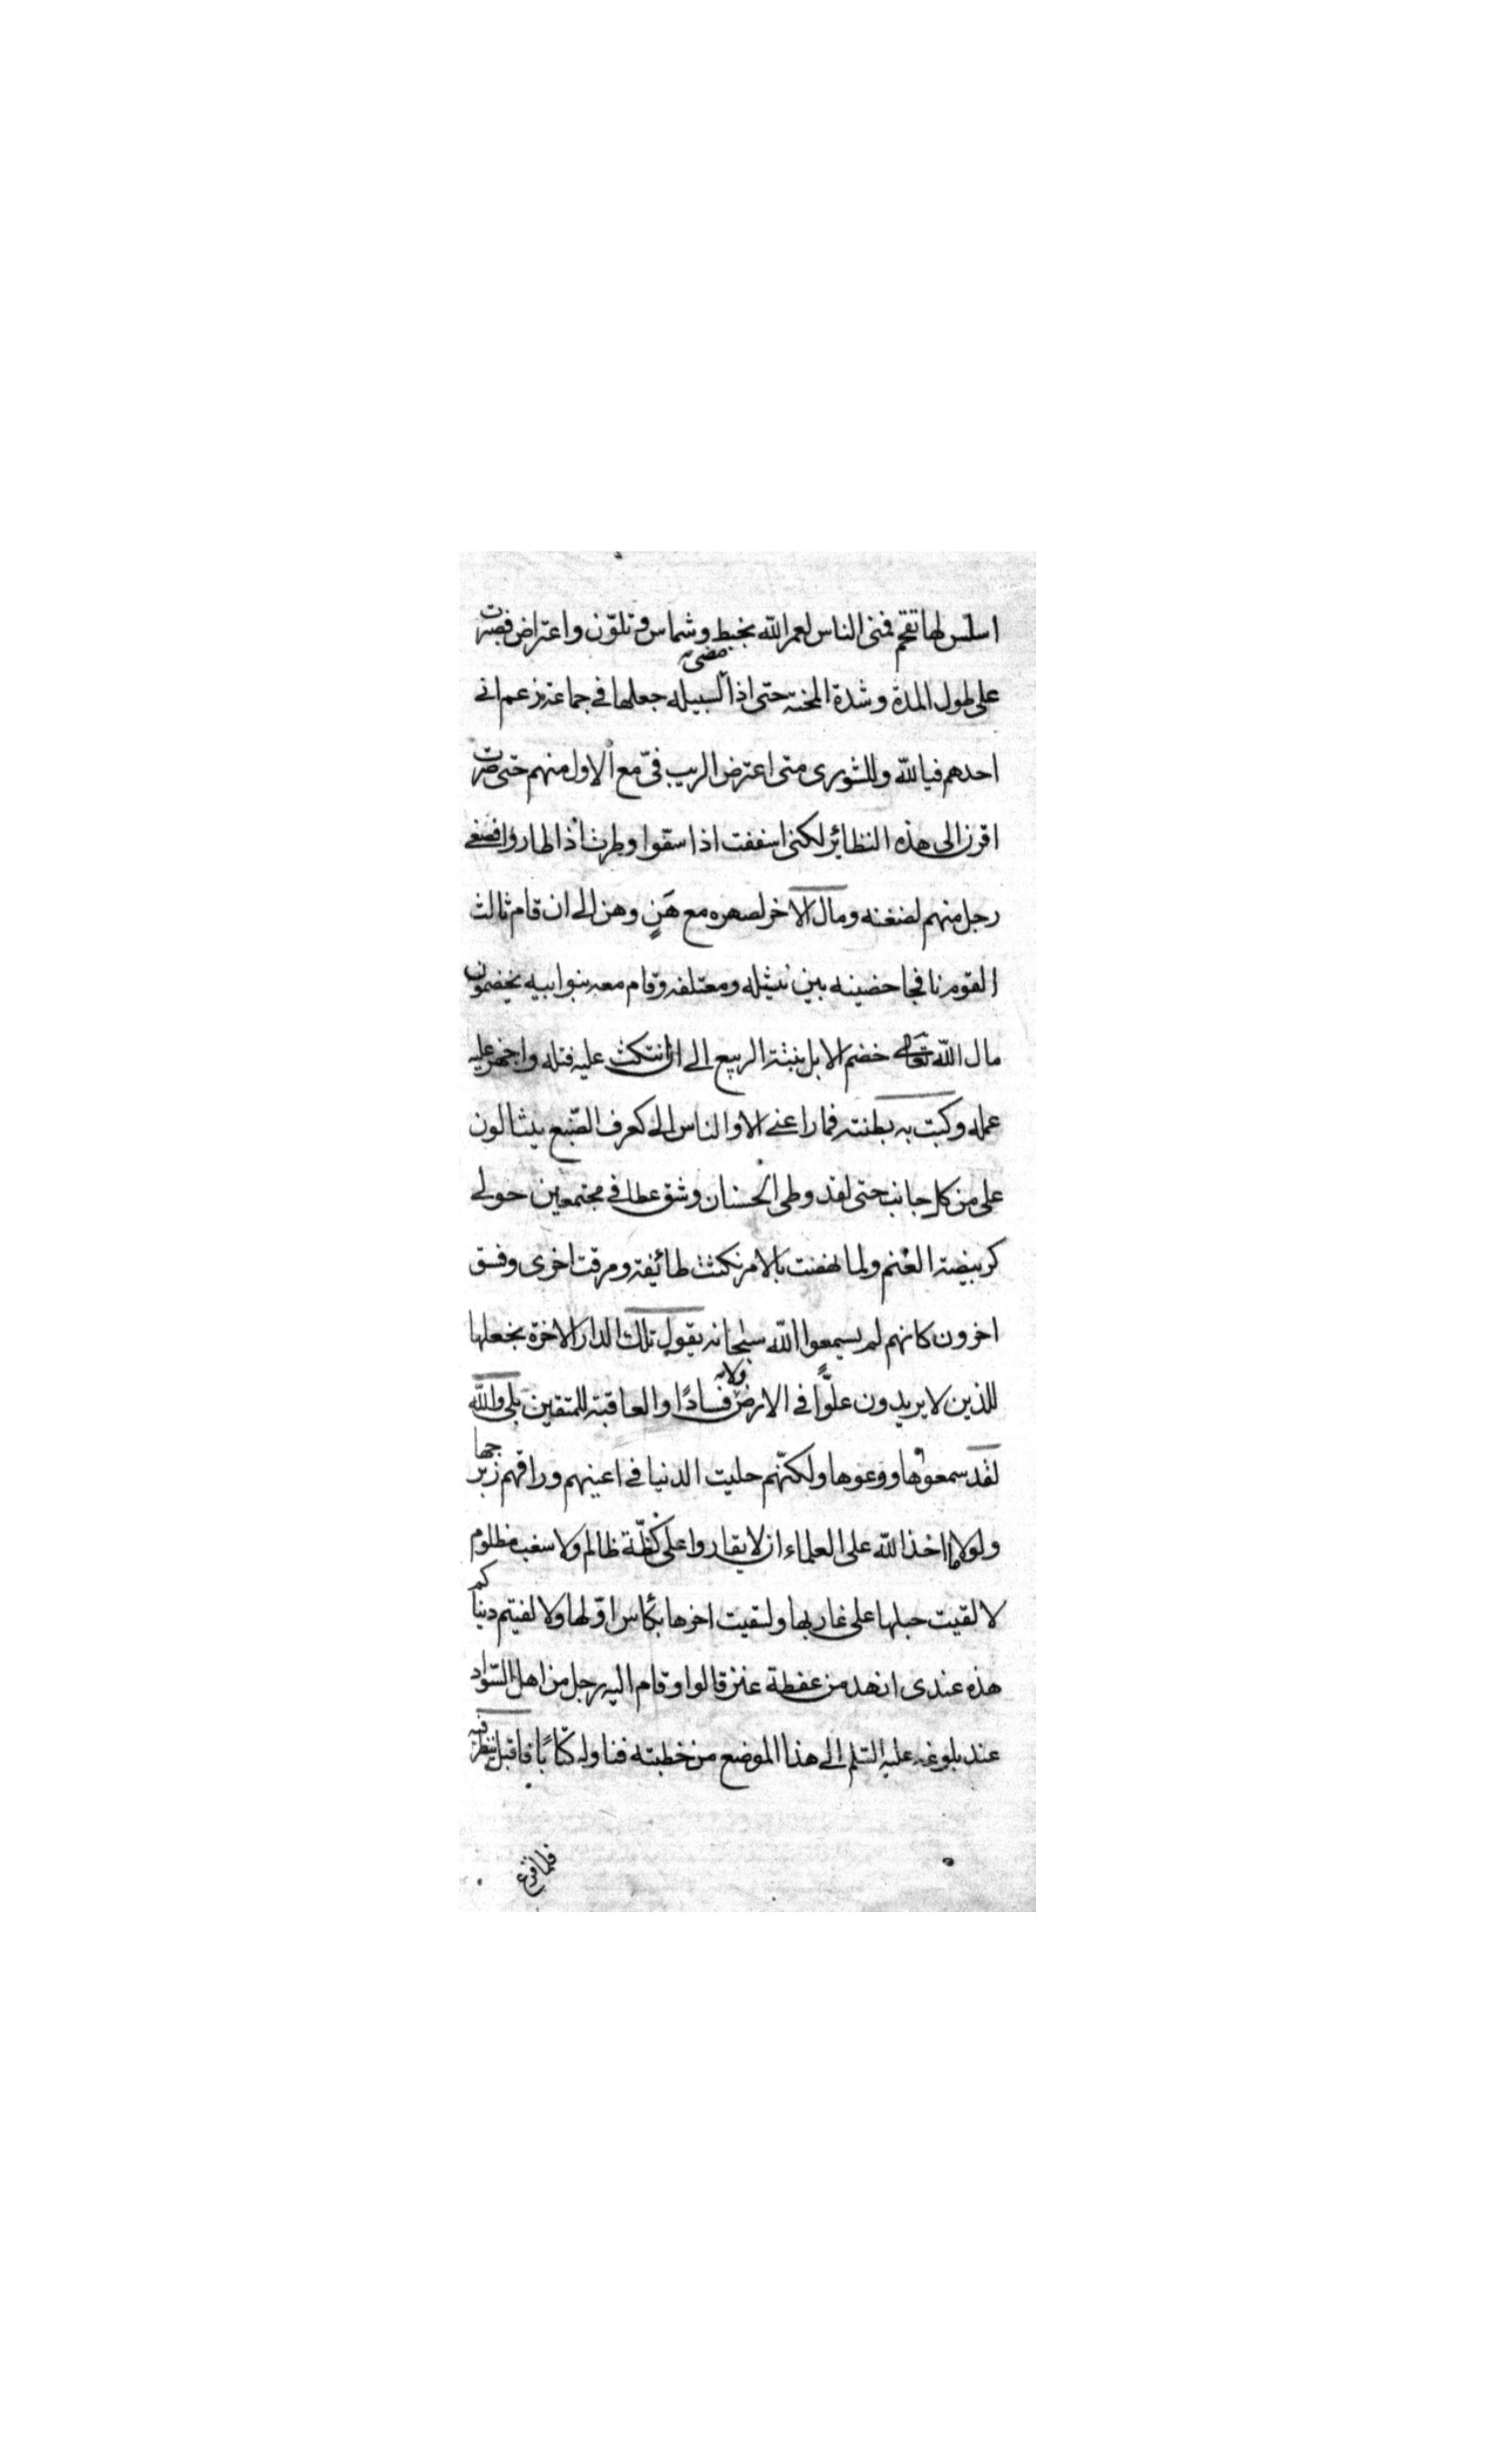 اسلس لها تقحم فمنى الناس لعمر الله بخبط وشماس وتلوّن واعتراض فصبرت
على طول المدة وشدة المحنة حتى اذا مضى لسبيله جعلها في جماعة زعم اني
احدهم فيا لله وللشورى متى اعترض الريب فيّ مع الاول منهم حتى صرت
اقرن الى هذه النظائر لكنى اسففت اذ اسفّوا وطرت اذ اطاروا فصغى
رجل منهم لضغنه ومال الاخر لصهره مع هَنٍ وهن الى ان قام ثالث
القوم نافجا حضينه بين نثيله ومعتلفه وقام معه بنو ابيه يخضمون
مال الله تعالى خضم الابل نبتة الربيع الى ان انتكث عليه فتله واجهز عليه
عمله وكبت به بطنته فما راعنى الا والناس الىّ كعرف الضّبع ينثالون
على من كل جانب حتى لقد وطى الحسنان وشق عطافي مجتمعين حولى
كربيضة الغنم ولما نهضت بالامر نكثت طائفة ومرقت اخرى وفسق
اخرون كانهم لم يسمعوا الله سبحانه يقول تلك الدار الاخرة نجعلها
للذين لا يريدون علوًّا في الارض ولا فسادًا والعاقبة للمتقين بلى والله
لقد سمعوها ووعوها ولكنّهم حليت الدنيا في اعينهم وراقهم زبرجها
ولولا ما اخذ الله على العلماء ان لا يقاروا على كظّة ظالم ولا سغب مظلوم
لالقيت حبلها على غاربها ولسقيت اخرها بكأس اوّلها ولالفيتم دنياكم
هذه عندى ازهد من عفطة عنز قالوا وقام اليه رجل من اهل السّواد
عند بلوغه عليه السّلم الى هذا الموضع من خطبته فناوله كتابًا فاقبل ينظر فيه
فلما فرغ